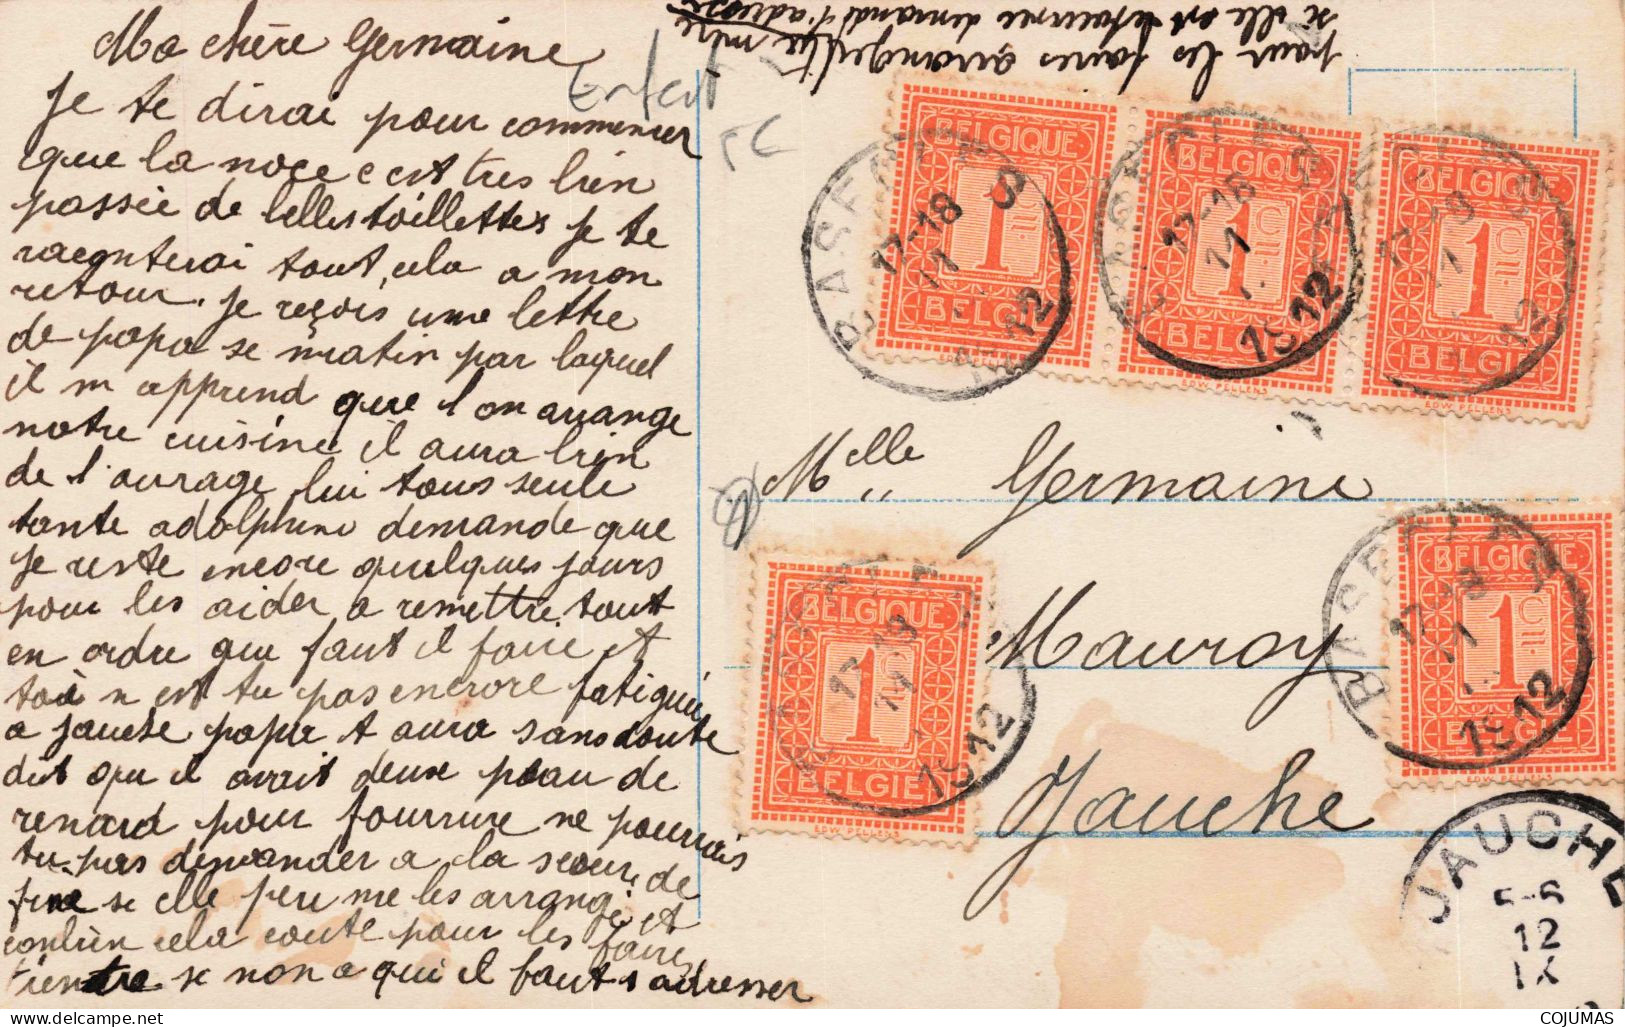 Ma chère Germaine
Je te dirai pour commencer
que la noçe c est tres bien
passée de belles toillettes je te
raconterai tout cela a mon
retour. Je reçois une lettre
de papa se matin par laquel
il m apprend que l on arrange
notre cuisine il aura bien
de l'ourage lui tous seule
tante adolphine demande que
je reste encore quelques jours
pour les aider a remettre tout
en ordre que faut il faire et
toi n est tu pas encrore fatiguée
a jauche papa t aura sans doute
dit qu il avait deux peau de
renard pour fourrure ne pourrais
tu pas demander a la seour de
si elle peu me les arranger et
conbien cela coute pour les faire
tientre se non a qui il faut s adresser
pour les faires arranger
si elle est demande l'adresse
Enfant
5C
BELGIQUE
1C
BELGIE
BELGIQUE
1C
BELGIE
EDW. PELLENS
BELGIQUE
1C
BELGIE
EDW. PELLENS
17-18
11
1912
Melle Germaine
Mauroy
Jauche
BELGIQUE
1C
BELGIE
EDW. PELLENS
BELGIQUE
1C
BELGIE
EDW. PELLENS
JAUCHE
5-6
12
IX
COJUMAS